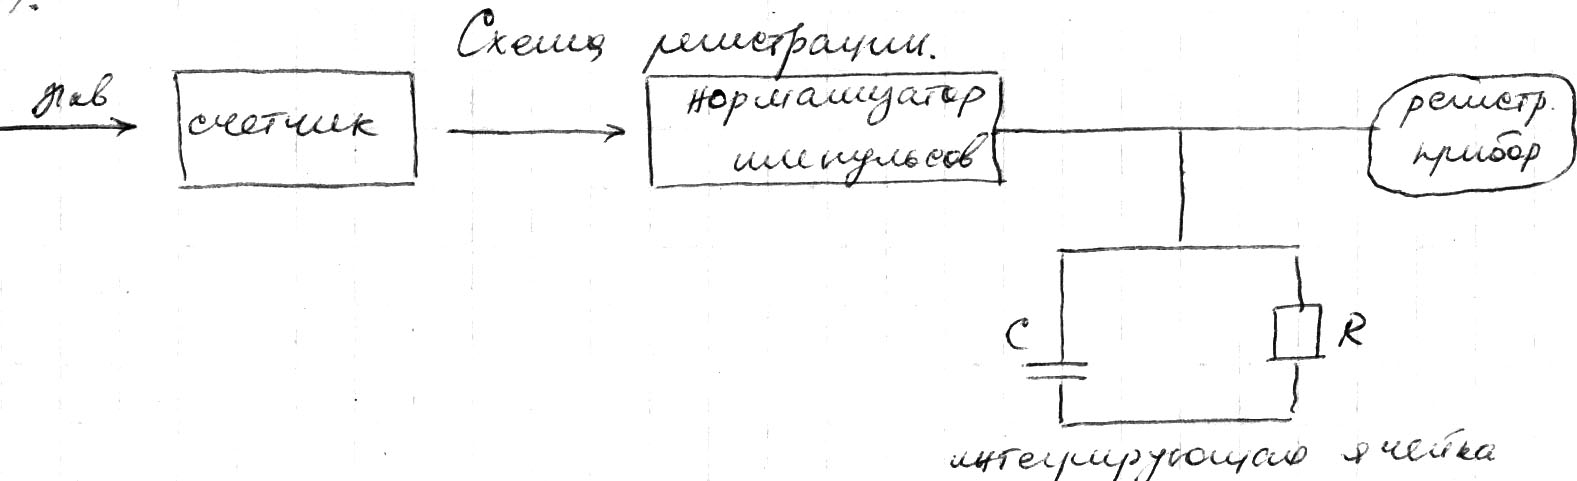 Схема регистрации.
счетчик
нормализатор
импульсов
регистр.
прибор
C
R
интегрирующая ячейка